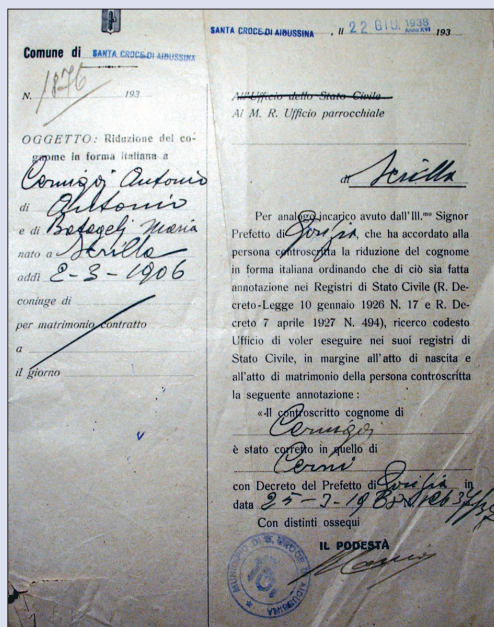 Comune di SANTA CROCE DI AIDUSSINA
N. 1876 193
OGGETTO: Riduzione del co-
gnome in forma italiana a
Cernigoj Antonio
di Antonio
e di Batagelj Maria
nato a Scrilla
addì 2-3-1906
coniuge di
per matrimonio contratto
a
il giorno
SANTA CROCE DI AIDUSSINA, li 22 GIU. 1938 Anno XVI 193
All'Ufficio dello Stato Civile
Al M. R. Ufficio parrocchiale
di Scrilla
Per analogo incarico avuto dall'Ill.mo Signor
Prefetto di Gorizia, che ha accordato alla
persona controscritta la riduzione del cognome
in forma italiana ordinando che di ciò sia fatta
annotazione nei Registri di Stato Civile (R. De-
creto-Legge 10 gennaio 1926 N. 17 e R. De-
creto 7 aprile 1927 N. 494), ricerco codesto
Ufficio di voler eseguire nei suoi registri di
Stato Civile, in margine all'atto di nascita e
all'atto di matrimonio della persona controscritta
la seguente annotazione:
«Il controscritto cognome di
Cernigoj
è stato corretto in quello di
Cerni
con Decreto del Prefetto di Gorizia in
data 25-3-19
Con distinti ossequi
IL PODESTÀ
MUNICIPIO DI S. CROCE DI AIDUSSINA